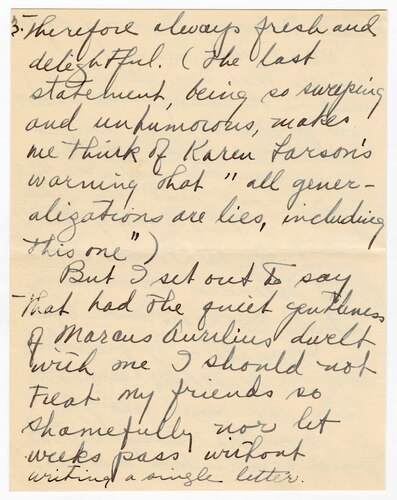 3.
Therefore always fresh and
delightful. (The last
statement, being so sweeping
and unhumorous, makes
me think of Karen Larson's
warning that " all gener-
alizations are lies, including
this one")
But I set out to say
that had the quiet gentleness
of Marcus Aurilius dwelt
with me I should not
treat my friends so
shamefully nor let
weeks pass without
writing a single letter.